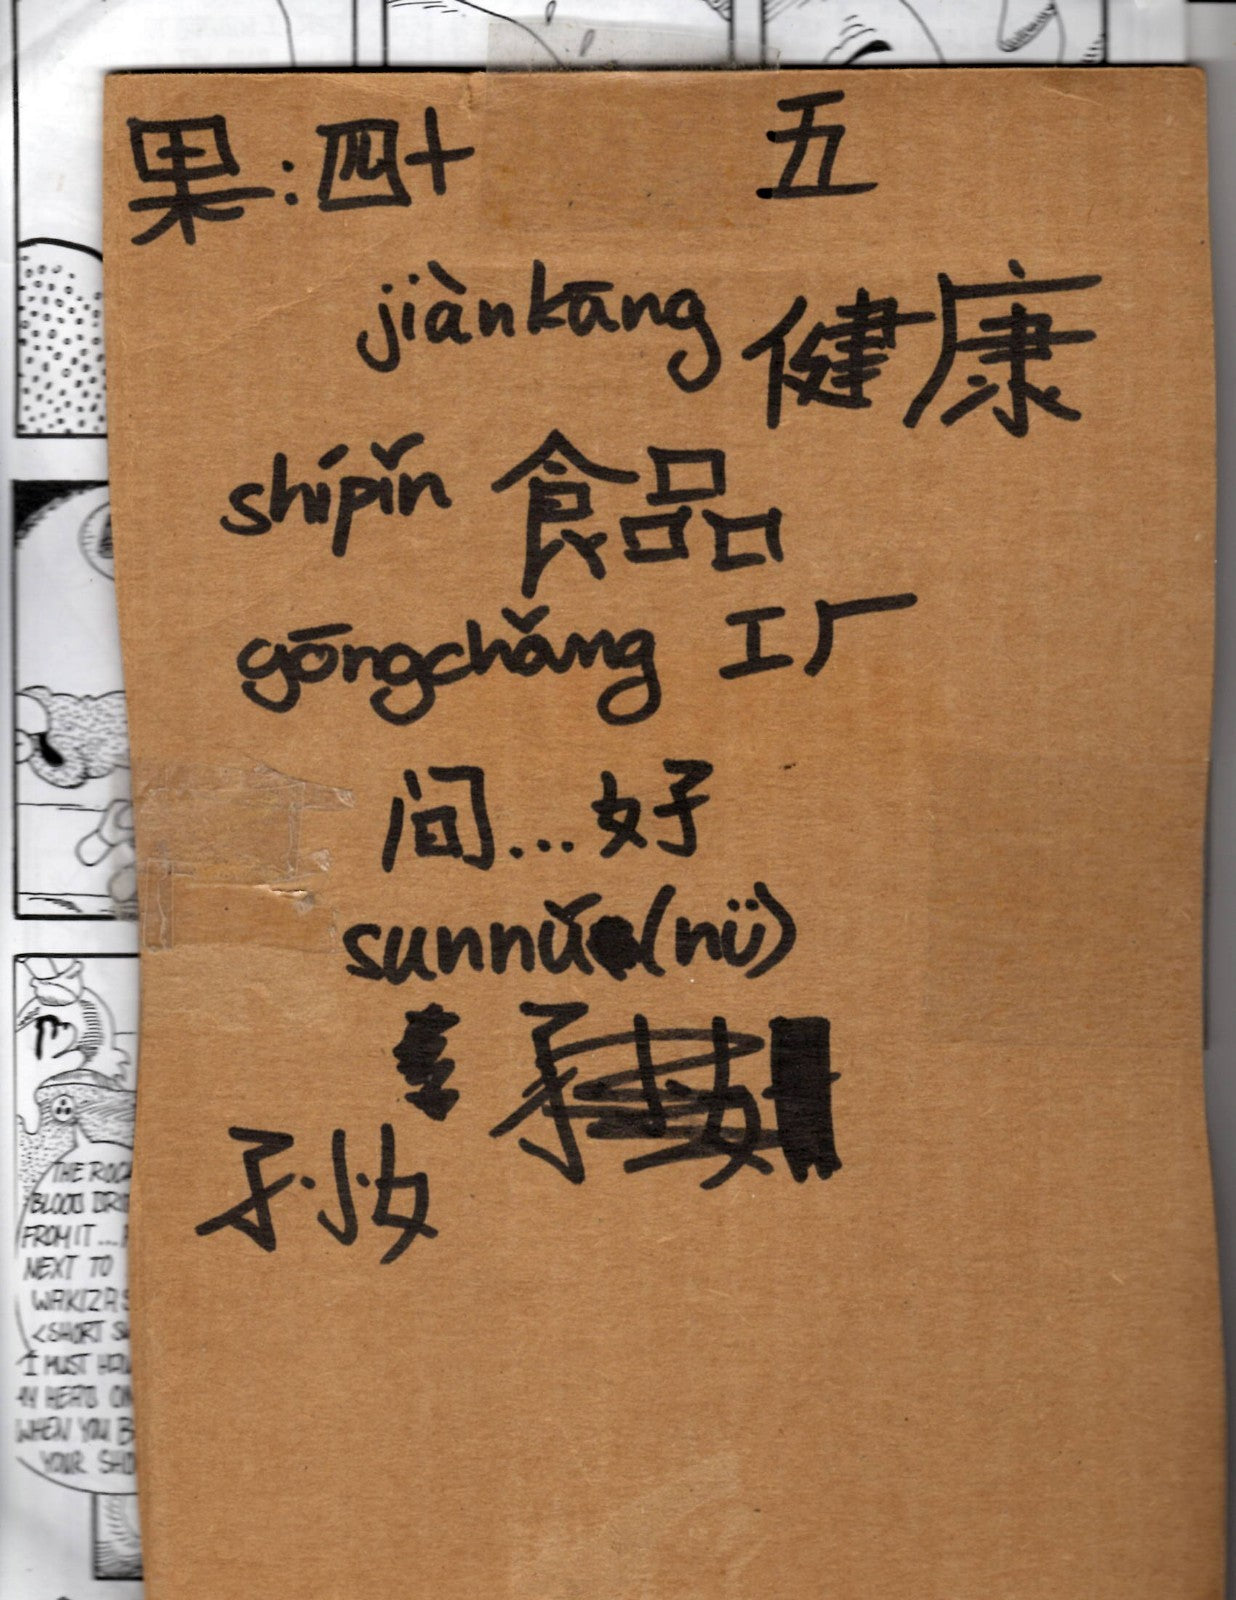 果:四十 五
jiànkāng 健康
shípǐn 食品
gōngchǎng 工厂
间...好
sunnǚ(nü)
孙女
THE ROC
BLOOD DRI
FROM IT....
NEXT TO
WAKIZAS
<SHORT SW
I MUST HAV
MY HEAD ON
WHEN YOU B
YOUR SHO